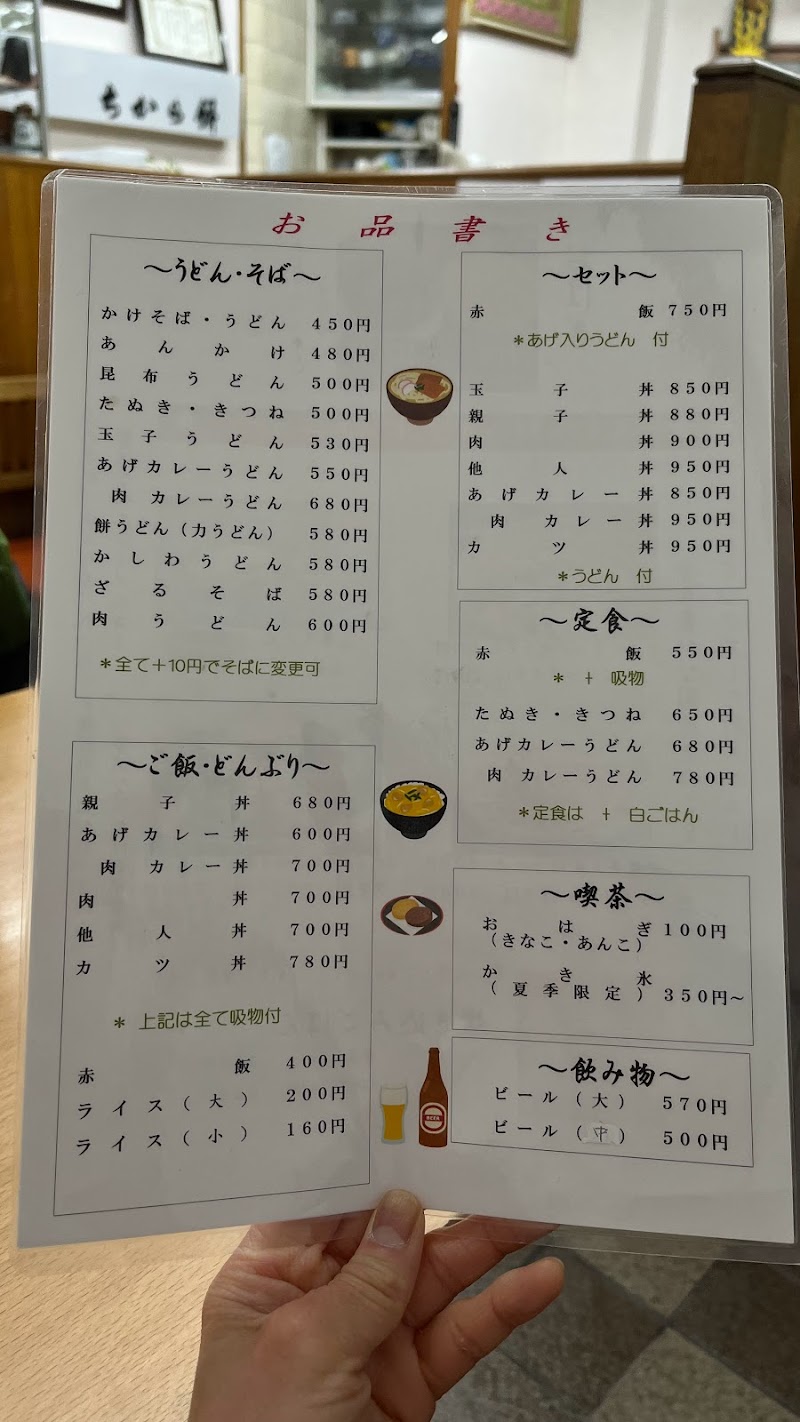 ちから餅
お品書き
～うどん・そば～
かけそば・うどん 450円
あんかけ 480円
昆布うどん 500円
たぬき・きつね 500円
玉子うどん 530円
あげカレーうどん 550円
肉カレーうどん 680円
餅うどん（力うどん） 580円
かしわうどん 580円
ざるそば 580円
肉うどん 600円
＊全て＋10円でそばに変更可
～ご飯・どんぶり～
親子丼 680円
あげカレー丼 600円
肉カレー丼 700円
肉丼 700円
他人丼 700円
カツ丼 780円
＊ 上記は全て吸物付
赤飯 400円
ライス（大） 200円
ライス（小） 160円
～セット～
赤飯 750円
＊あげ入りうどん 付
玉子丼 850円
親子丼 880円
肉丼 900円
他人丼 950円
あげカレー丼 850円
肉カレー丼 950円
カツ丼 950円
＊うどん 付
～定食～
赤飯 550円
＊ ＋ 吸物
たぬき・きつね 650円
あげカレーうどん 680円
肉カレーうどん 780円
＊定食は ＋ 白ごはん
～喫茶～
おはぎ 100円
（きなこ・あんこ）
かき氷
（夏季限定） 350円～
～飲み物～
ビール（大） 570円
ビール（中） 500円